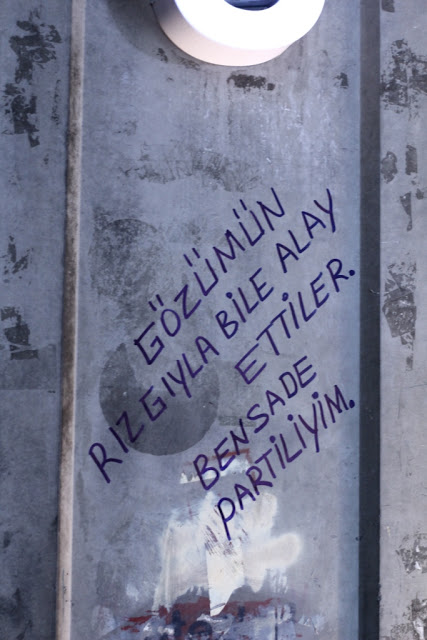 GÖZÜMÜN
RIZGIYLA BİLE ALAY
ETTİLER.
BENSADE
PARTİLİYİM.